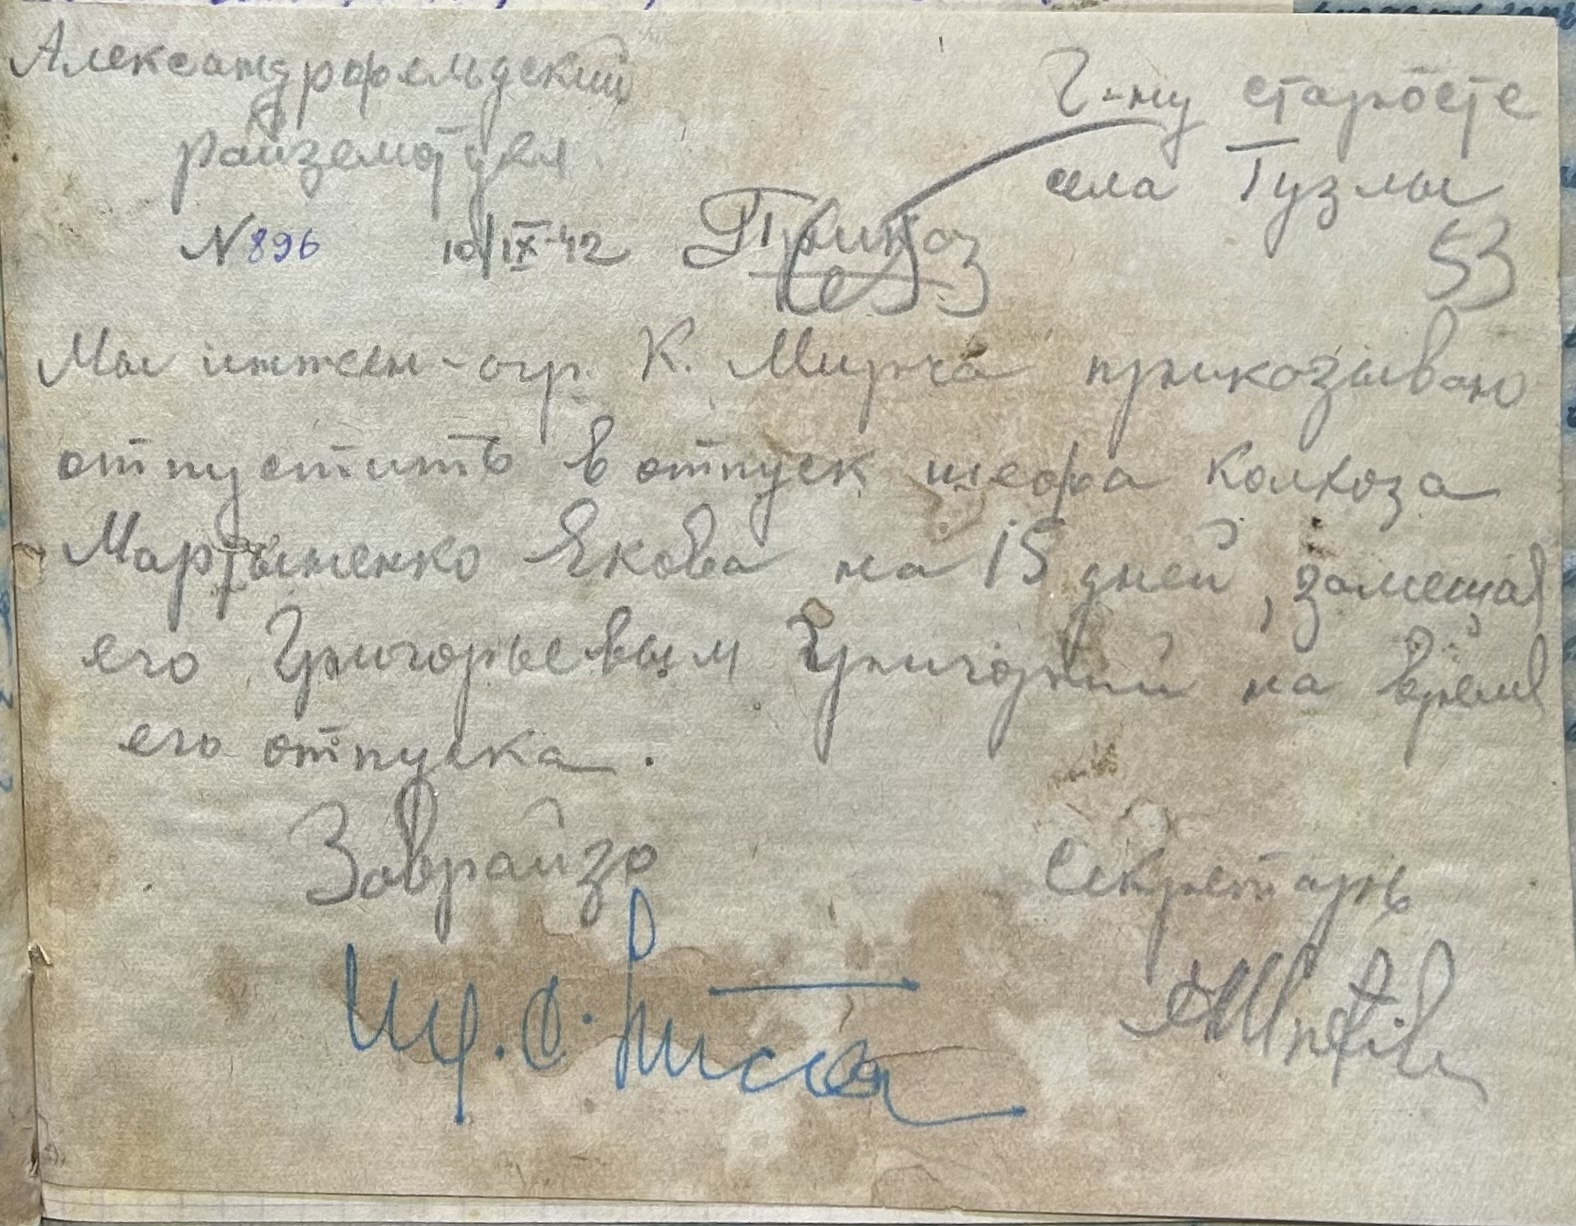 Александрофельдский
райземотдел
Г-ну старосте
села Тузлы
N 896 10/IX-42 Приказ
53
Мы инжен-агр. К. Мирча приказываю
отпустить в отпуск шефа колхоза
Мартыненко Якова на 15 дней, замещая
его Григорьевым Григорий на время
его отпуска.
Заврайзо Секретарь